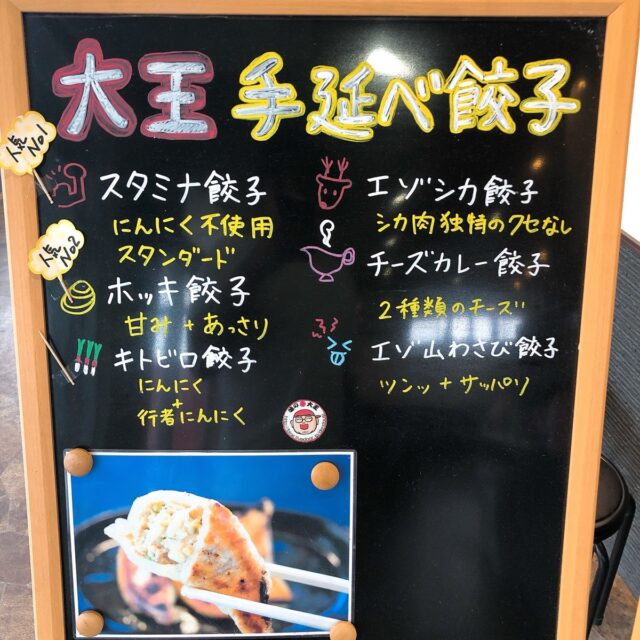 大王 手延べ餃子
人気
No1
スタミナ餃子
にんにく不使用
スタンダード
人気
No2
ホッキ餃子
甘み+あっさり
キトビロ餃子
にんにく
+
行者にんにく
エゾシカ餃子
シカ肉独特のクセなし
チーズカレー餃子
2種類のチーズ
エゾ山わさび餃子
ツンッ+サッパリ